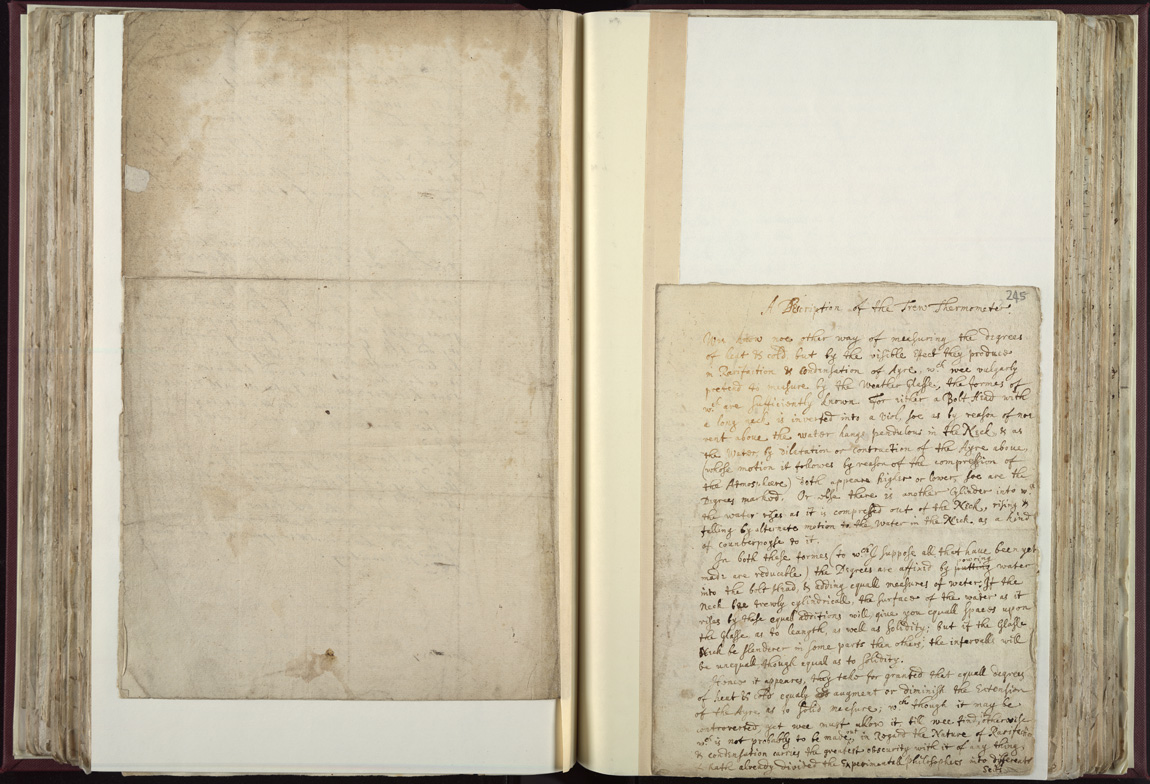 245
A Discription of the Trew Thermometer.
Wee know noe other way of measuring the degrees
of heat & cold, but by the visible effect they produce
in Rarifaction & condensation of Ayre, wch wee vulgarly
pretend to measure by the Weather Glasse, the formes of
wch are sufficiently known For either a Bolt Head with
a long neck is inverted into a Viol, soe as by reason of noe
vent above the water hangs pendulous in the Neck & as
the Water by Dilatation or Contraction of the Ayre above,
(whose motion it followes by reason of the compression of
the Atmosphere) doth appeare higher or lower, soe are the
Degrees marked. Or else there is another Cylinder into wch
the water rises as it is compressed out of the Neck, rising &
falling by alternate motion to the Water in the Neck as a kind
of counterpoyse to it.
In both these formes (to wch I suppose all that have been yet
made are reducible) the Degrees are assind by putting water
into the bolt Head, & adding equall measures of water. If the
Neck bee trewly cylindricall, the surface of the water as it
rises by these equall additions will give you equall spaces upon
the Glasse as to leangth, as well as Solidity; but if the Glasse
Neck be slenderer in some parts then others, the intervalls will
be unequall though equal as to Solidity.
Hence it appeares, they take for granted that equall degrees
of heat & cold equaly augment or diminish the Extension
of the Ayre as to Solid measure; wch though it may be
controverted yet wee must allow it till wee find otherwise
wch is not probably to be made, in Regard the Nature of Rarifaction
& condensation carries the greatest obscurity with it of any thing,
& hath already divided the Experimentall Philosophers into different
Sects